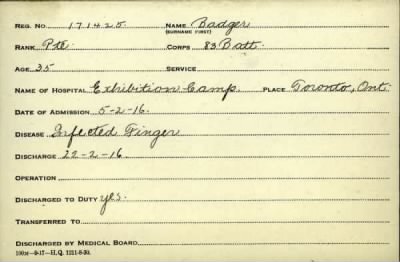 REG. NO. 171425 NAME Badger
(SURNAME FIRST)
RANK Pte. CORPS 83 Batt.
AGE 35 SERVICE
NAME OF HOSPITAL Exhibition Camp. PLACE Toronto, Ont.
DATE OF ADMISSION 5-2-16.
DISEASE Infected Finger
DISCHARGE 22-2-16
OPERATION
DISCHARGED TO DUTY yes.
TRANSFERRED TO
DISCHARGED BY MEDICAL BOARD
100M-9-17-H.Q. 1211-8-30.